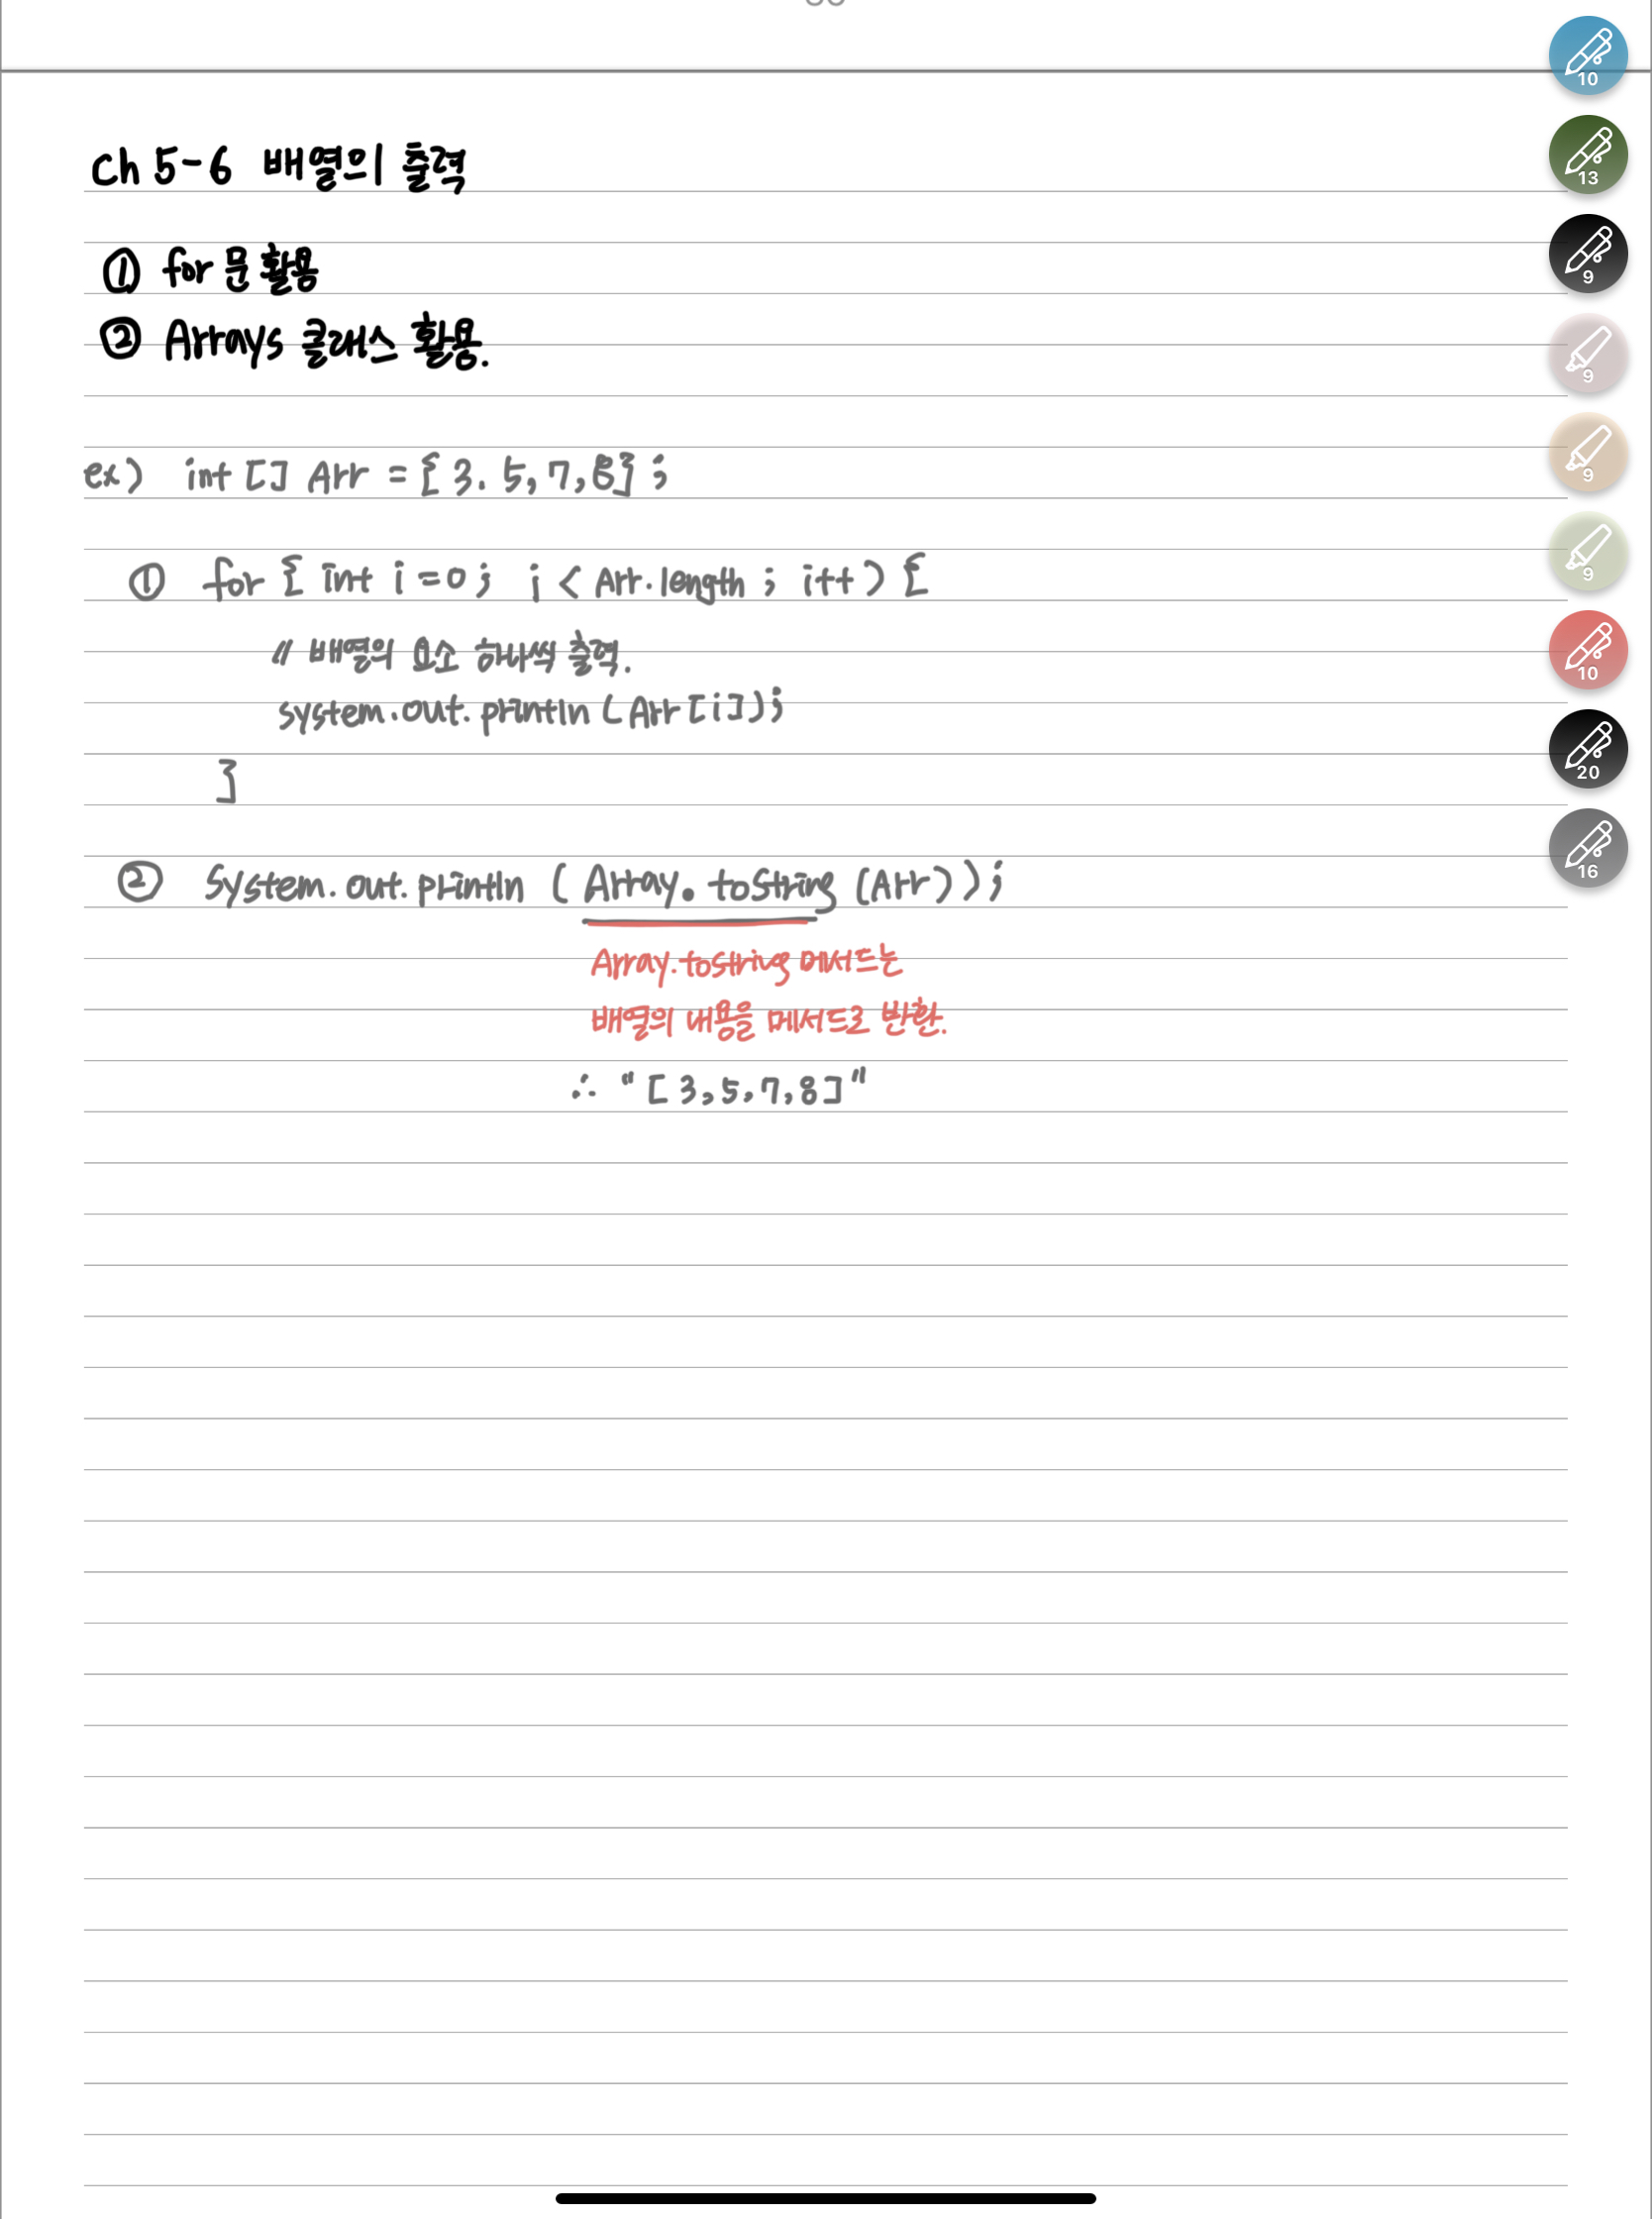 Ch 5-6 배열의 출력
① for 문 활용
② Arrays 클래스 활용.
ex) int [] Arr = { 3. 5, 7, 8} ;
① for { int i = 0 ; i < Arr.length ; i++ ) {
// 배열의 요소 하나씩 출력.
system.out.println ( Arr [i]);
}
② System.out.println ( Array. toString (Arr));
Array.tostring 메서드는
배열의 내용을 메서드로 반환.
∴ "[ 3, 5, 7, 8 ]"
10
13
9
9
9
9
10
20
16